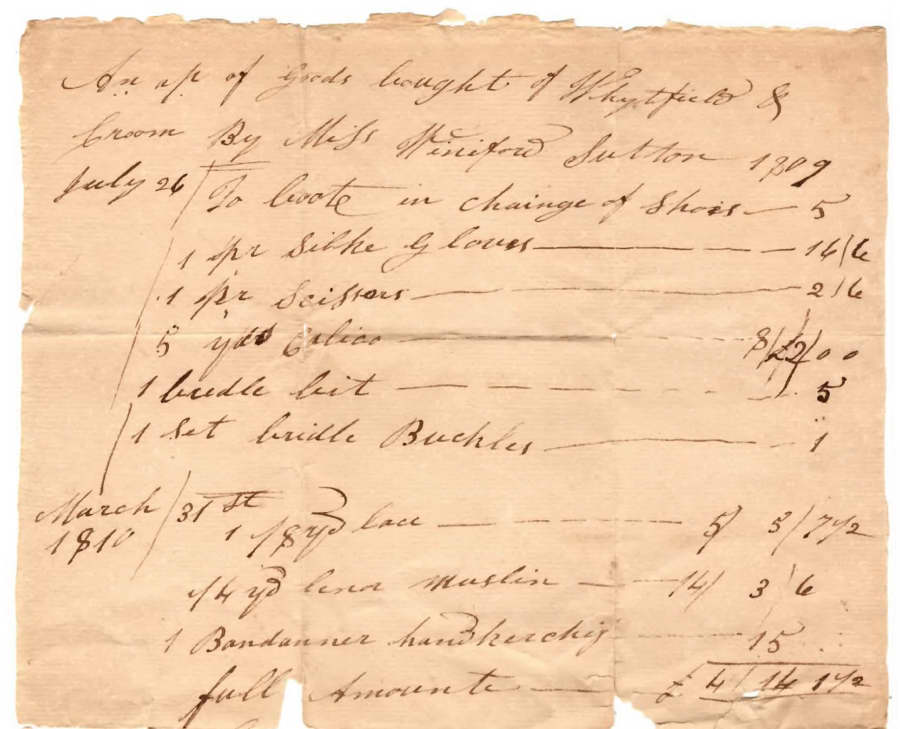 An a/c of Goods bought of Whytfield &
Croom By Miss Winiford Sutton 1809
July 26 / To boote in chainge of Shois — 5
1 pr Silke Gloves — 16/6
1 pr Scissors — 2/6
5 yds Calico — 8/ £2/00
1 bredle bit — 5
1 Set bridle Buckles — 1
March / 31st
1810 1 1/8 yd lace — 5/ 5/7 1/2
1/4 yd lenor Muslin — 14/ 3/6
1 Bandanner handkerchif 15
full Amounte — £ 4/14 1 1/2